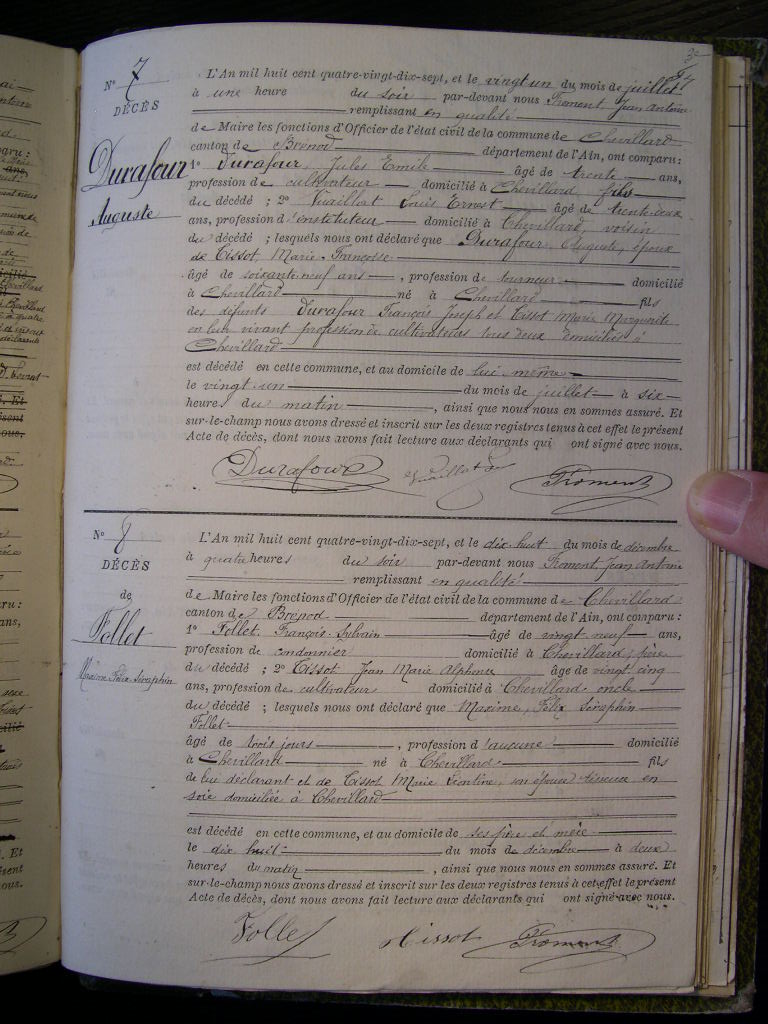 3e
97
N° 7
DÉCÈS
Durafour
Auguste
L'An mil huit cent quatre-vingt-dix-sept, et le vingt un du mois de juillet
à une heure du soir par-devant nous Froment Jean Antoine
remplissant en qualité
de Maire les fonctions d'Officier de l'état civil de la commune de Chevillard
canton de Brénod département de l'Ain, ont comparu :
1° Durafour, Jules Emile âgé de trente ans,
profession de cultivateur domicilié à Chevillard fils
du décédé ; 2° Vuaillat Louis Ernest âgé de trente-deux
ans, profession d'instituteur domicilié à Chevillard, voisin
du décédé ; lesquels nous ont déclaré que Durafour, Auguste, époux
de Tissot Marie Françoise
âgé de soixante-neuf ans , profession de tourneur domicilié
à Chevillard né à Chevillard fils
des défunts Durafour François Joseph et Tissot Marie Marguerite
en leur vivant profession de cultivateurs tous deux domiciliés à
Chevillard
est décédé en cette commune, et au domicile de lui même
le vingt-un du mois de juillet à six
heures du matin , ainsi que nous nous en sommes assuré. Et
sur-le-champ nous avons dressé et inscrit sur les deux registres tenus à cet effet le présent
Acte de décès, dont nous avons fait lecture aux déclarants qui ont signé avec nous.
Durafour Froment
N° 8
DÉCÈS
de
Follet
Maxime Félix Séraphin
L'An mil huit cent quatre-vingt-dix-sept, et le dix huit du mois de décembre
à quatre heures du soir par-devant nous Froment Jean Antoine
remplissant en qualité
de Maire les fonctions d'Officier de l'état civil de la commune de Chevillard
canton de Brénod département de l'Ain, ont comparu :
1° Follet, François Sylvain âgé de vingt neuf ans,
profession de cordonnier domicilié à Chevillard, père
du décédé ; 2° Tissot Jean Marie Alphonse âgé de vingt cinq
ans, profession de cultivateur domicilié à Chevillard oncle
du décédé ; lesquels nous ont déclaré que Maxime, Félix Séraphin
Follet
âgé de trois jours , profession d'aucune domicilié
à Chevillard né à Chevillard fils
de lui déclarant et de Tissot Marie Léontine, son épouse tisseuse en
soie domiciliée à Chevillard
est décédé en cette commune, et au domicile de ses père et mère
le dix huit du mois de décembre à deux
heures du matin , ainsi que nous nous en sommes assuré. Et
sur-le-champ nous avons dressé et inscrit sur les deux registres tenus à cet effet le présent
Acte de décès, dont nous avons fait lecture aux déclarants qui ont signé avec nous.
Follet Tissot Froment